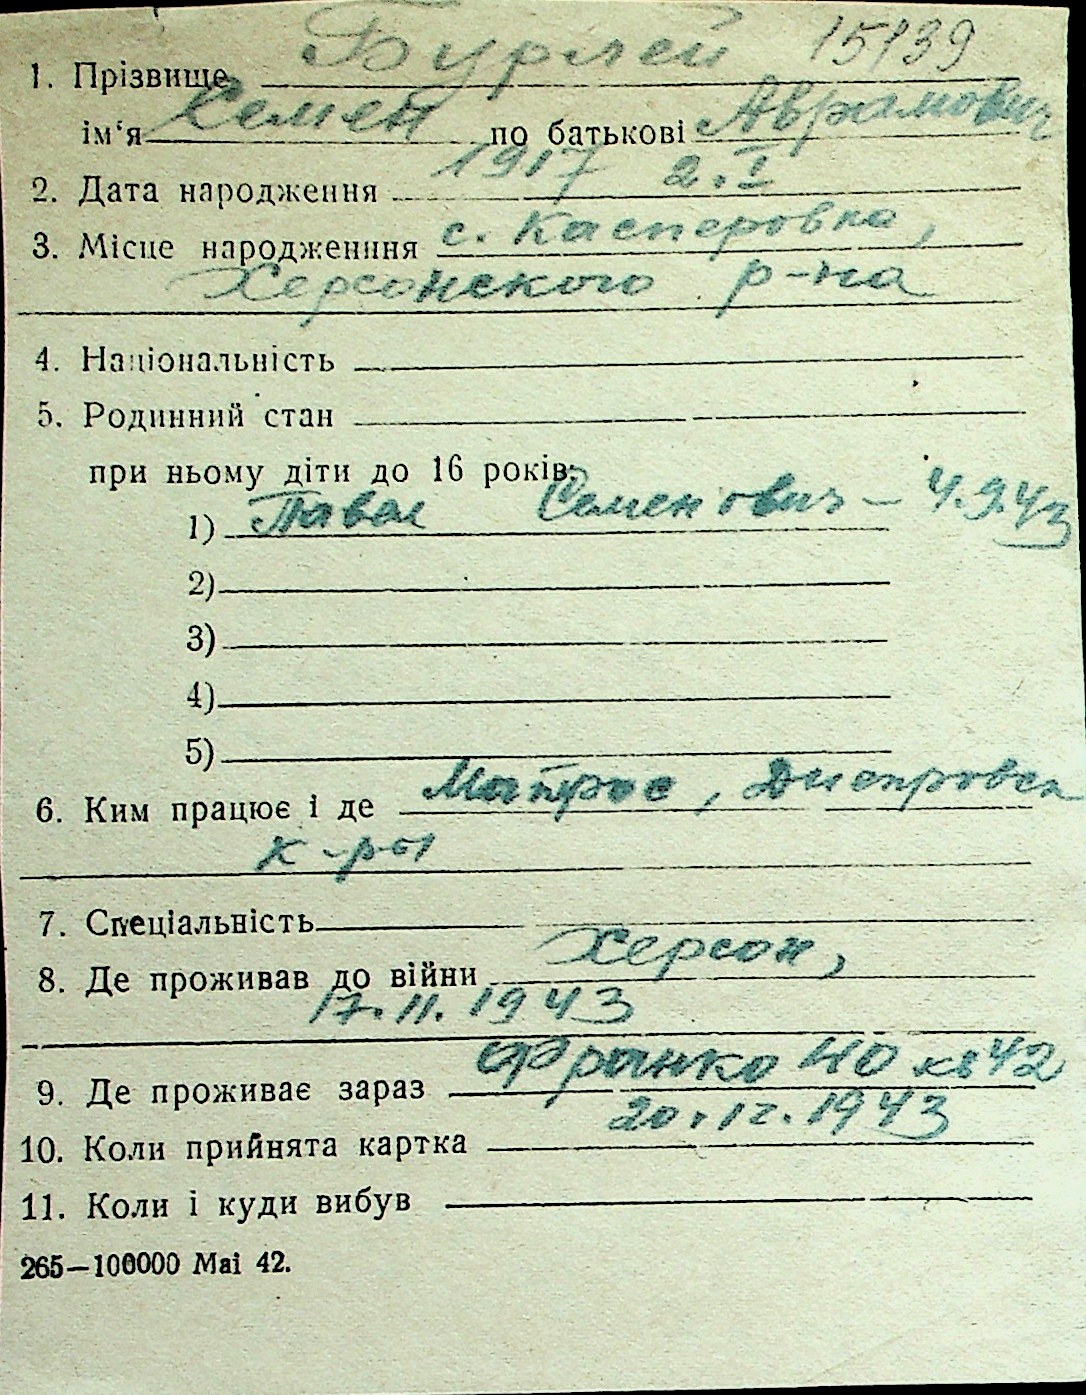 1. Прізвище Бурлей 15139
ім‘я Семен по батькові Аврамович
2. Дата народження 1917 2.I
3. Місце народженння с. Касперовка,
Херсонского р-на
4. Національність
5. Родинний стан
при ньому діти до 16 років:
1) Павел Семенович – 4.9.43
2)
3)
4)
5)
6. Ким працює і де Матрос, Днепровск
к-ры
7. Спеціальність
8. Де проживав до війни Херсон,
17.11.1943
9. Де проживає зараз Франко 40 кв 42
10. Коли прийнята картка 20.12.1943
11. Коли і куди вибув
265—100000 Mai 42.